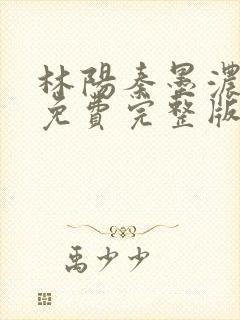 林陽秦墨濃
免費完整版
禹少少